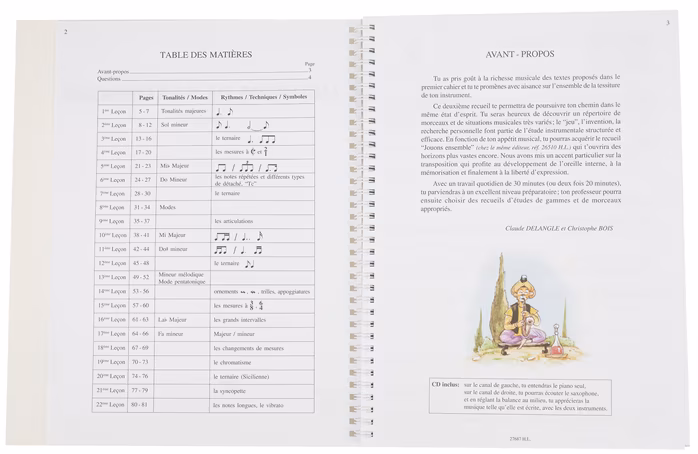 2
TABLE DES MATIÈRES
Page
Avant-propos 3
Questions 4
Pages Tonalités / Modes Rythmes / Techniques / Symboles
1ère Leçon 5 - 7 Tonalités majeures
2ème Leçon 8 - 12 Sol mineur
3ème Leçon 13 - 16 le ternaire
4ème Leçon 17 - 20 les mesures à et
5ème Leçon 21 - 23 Mi♭ Majeur
6ème Leçon 24 - 27 Do Mineur les notes répétées et différents types
de détaché, "Te"
7ème Leçon 28 - 30 le ternaire
8ème Leçon 31 - 34 Modes
9ème Leçon 35 - 37 les articulations
10ème Leçon 38 - 41 Mi Majeur
11ème Leçon 42 - 44 Do# mineur
12ème Leçon 45 - 48 le ternaire
13ème Leçon 49 - 52 Mineur mélodique
Mode pentatonique
14ème Leçon 53 - 56 ornements , trilles, appoggiatures
15ème Leçon 57 - 60 les mesures à 3/8 - 6/4
16ème Leçon 61 - 63 La♭ Majeur les grands intervalles
17ème Leçon 64 - 66 Fa mineur Majeur / mineur
18ème Leçon 67 - 69 les changements de mesures
19ème Leçon 70 - 73 le chromatisme
20ème Leçon 74 - 76 le ternaire (Sicilienne)
21ème Leçon 77 - 79 la syncopette
22ème Leçon 80 - 81 les notes longues, le vibrato
3
AVANT - PROPOS
Tu as pris goût à la richesse musicale des textes proposés dans le
premier cahier et tu te promènes avec aisance sur l'ensemble de la tessiture
de ton instrument.
Ce deuxième recueil te permettra de poursuivre ton chemin dans le
même état d'esprit. Tu seras heureux de découvrir un répertoire de
morceaux et de situations musicales très variés; le "jeu", l'invention, la
recherche personnelle font partie de l'étude instrumentale structurée et
efficace. En fonction de ton appétit musical, tu pourras acquérir le recueil
"Jouons ensemble" (chez le même éditeur, réf. 26510 H.L.) qui t'ouvrira des
horizons plus vastes encore. Nous avons mis un accent particulier sur la
transposition qui profite au développement de l'oreille interne, à la
mémorisation et finalement à la liberté d'expression.
Avec un travail quotidien de 30 minutes (ou deux fois 20 minutes),
tu parviendras à un excellent niveau préparatoire; ton professeur pourra
ensuite choisir des recueils d'études de gammes et de morceaux
appropriés.
Claude DELANGLE et Christophe BOIS
CD inclus: sur le canal de gauche, tu entendras le piano seul,
sur le canal de droite, tu pourras écouter le saxophone,
et en réglant la balance au milieu, tu apprécieras la
musique telle qu'elle est écrite, avec les deux instruments.
27667 H.L.